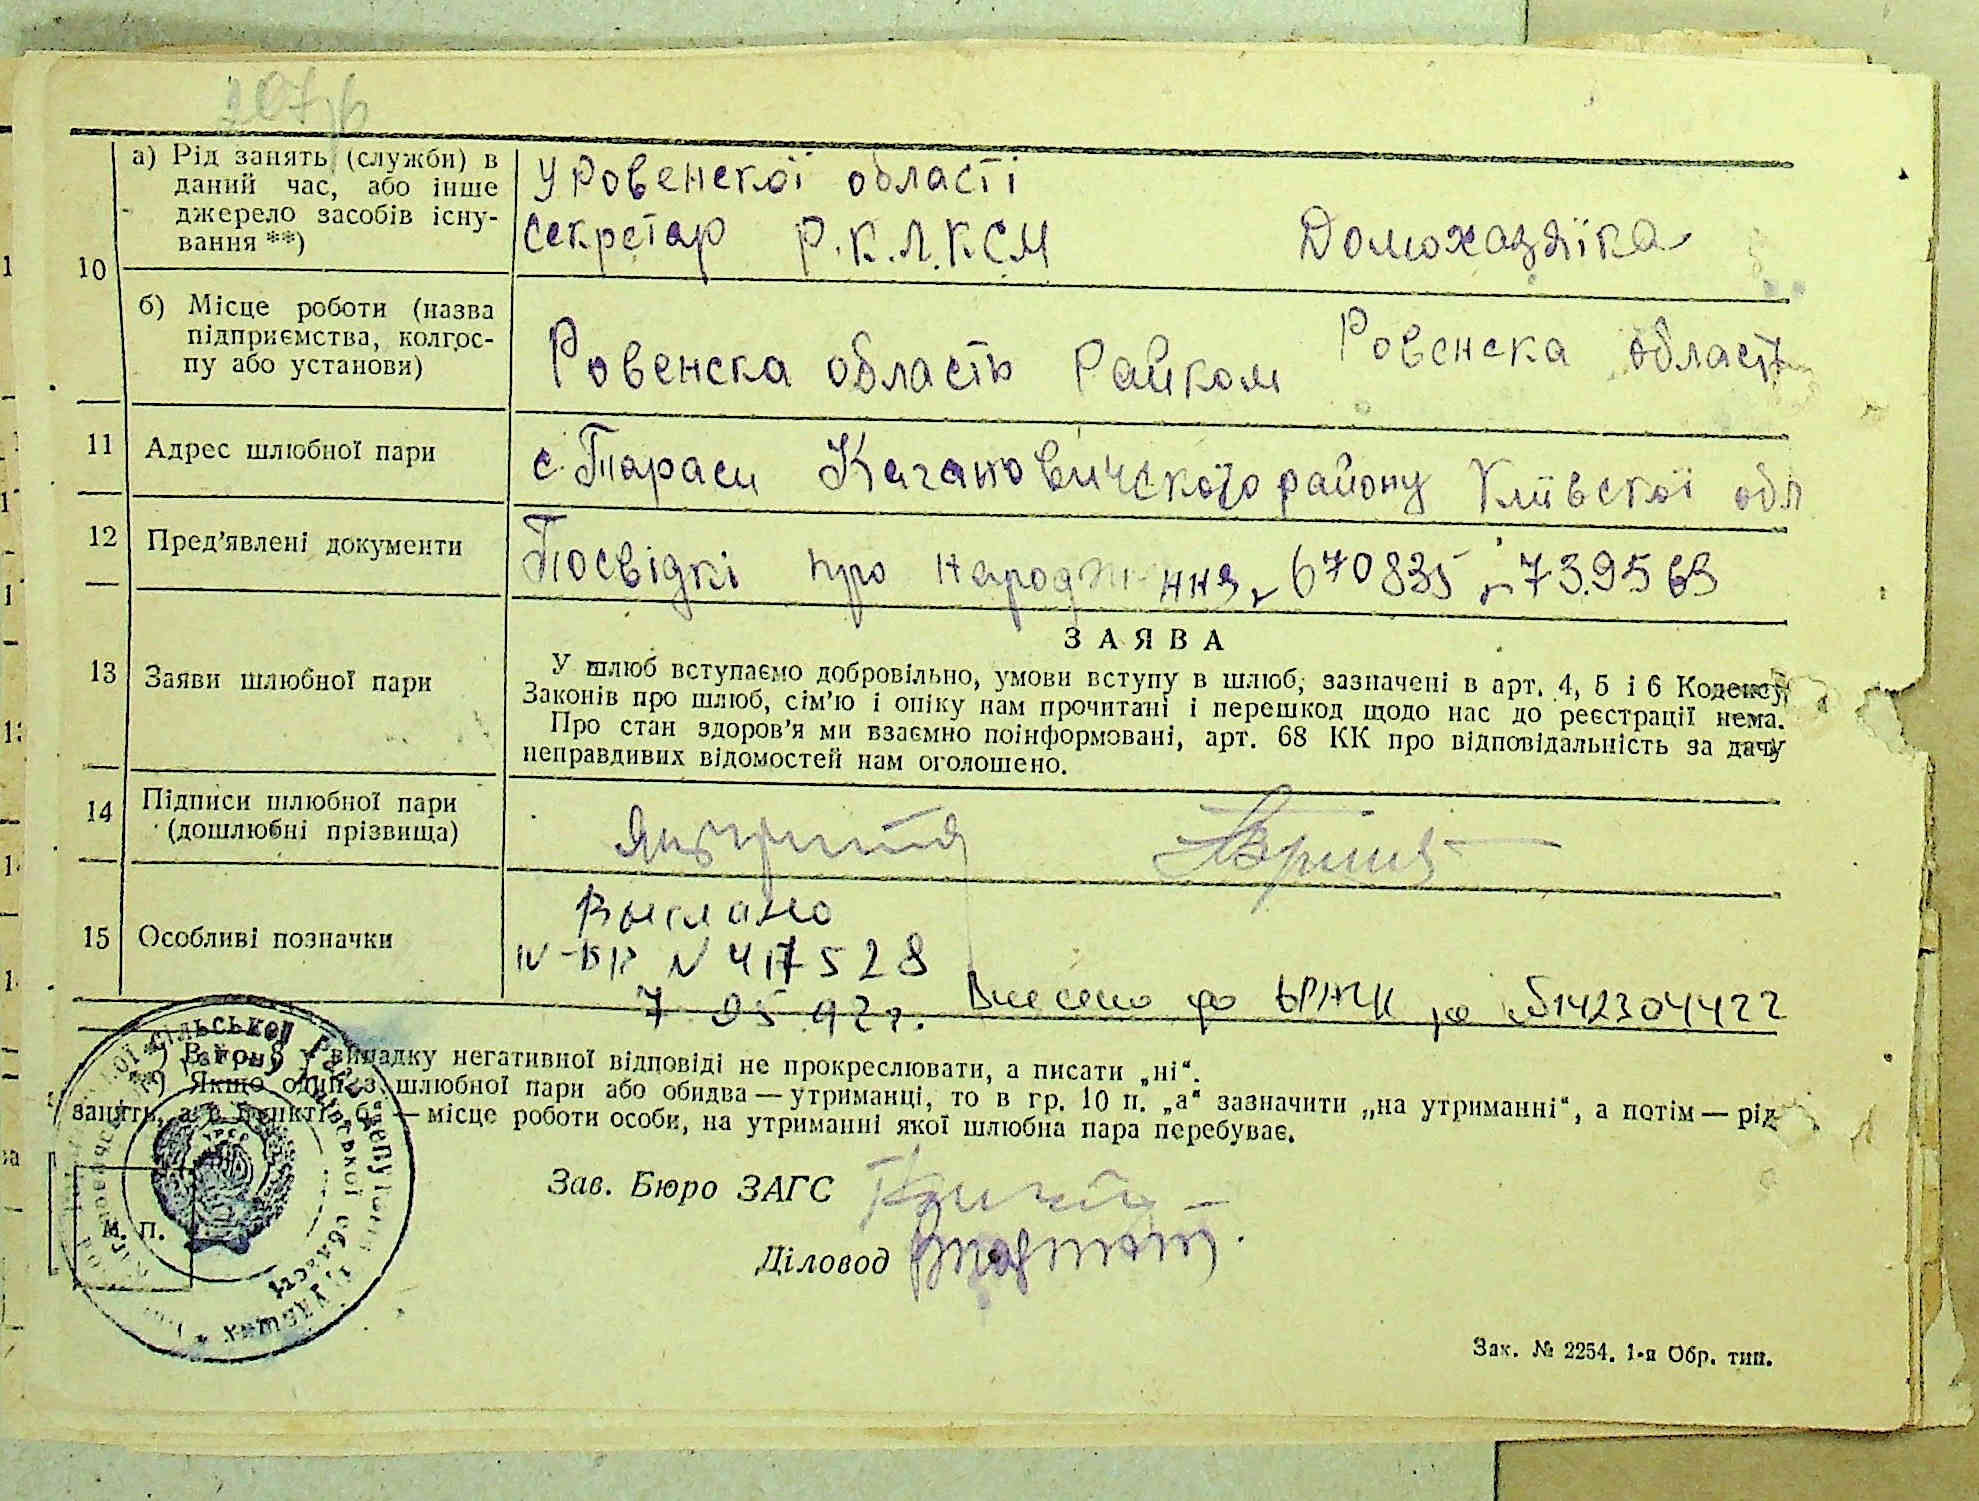 207
а) Рід занять (служби) в
даний час, або інше
джерело засобів існу-
вання **)
у Ровенскої області
секретар Р.К.Л.КСМ
Домохазяїка
10
б) Місце роботи (назва
підприємства, колгос-
пу або установи)
Ровенска область Райком
Ровенска область
11 Адрес шлюбної пари
с. Тараси Кагановичского району Київскої обл
12 Пред'явлені документи
Посвідкі про народження 670835 739563
13 Заяви шлюбної пари
ЗАЯВА
У шлюб вступаємо добровільно, умови вступу в шлюб, зазначені в арт. 4, 5 і 6 Кодексу
Законів про шлюб, сім'ю і опіку нам прочитані і перешкод щодо нас до реєстрації нема.
Про стан здоров'я ми взаємно поінформовані, арт. 68 КК про відповідальність за дачу
неправдивих відомостей нам оголошено.
14 Підписи шлюбної пари
(дошлюбні прізвища)
15 Особливі позначки
IV-БК N 417528
7 05 92 г.
Внесено до
) В гр. 8 у випадку негативної відповіді не прокреслювати, а писати „ні“.
) Якщо один з шлюбної пари або обидва — утриманці, то в гр. 10 п. „а“ зазначити „на утриманні“, а потім — рід
занять, а в пункті „б“ — місце роботи особи, на утриманні якої шлюбна пара перебуває.
Зав. Бюро ЗАГС
Діловод
м. п.
Зак. № 2254. 1-я Обр. тип.